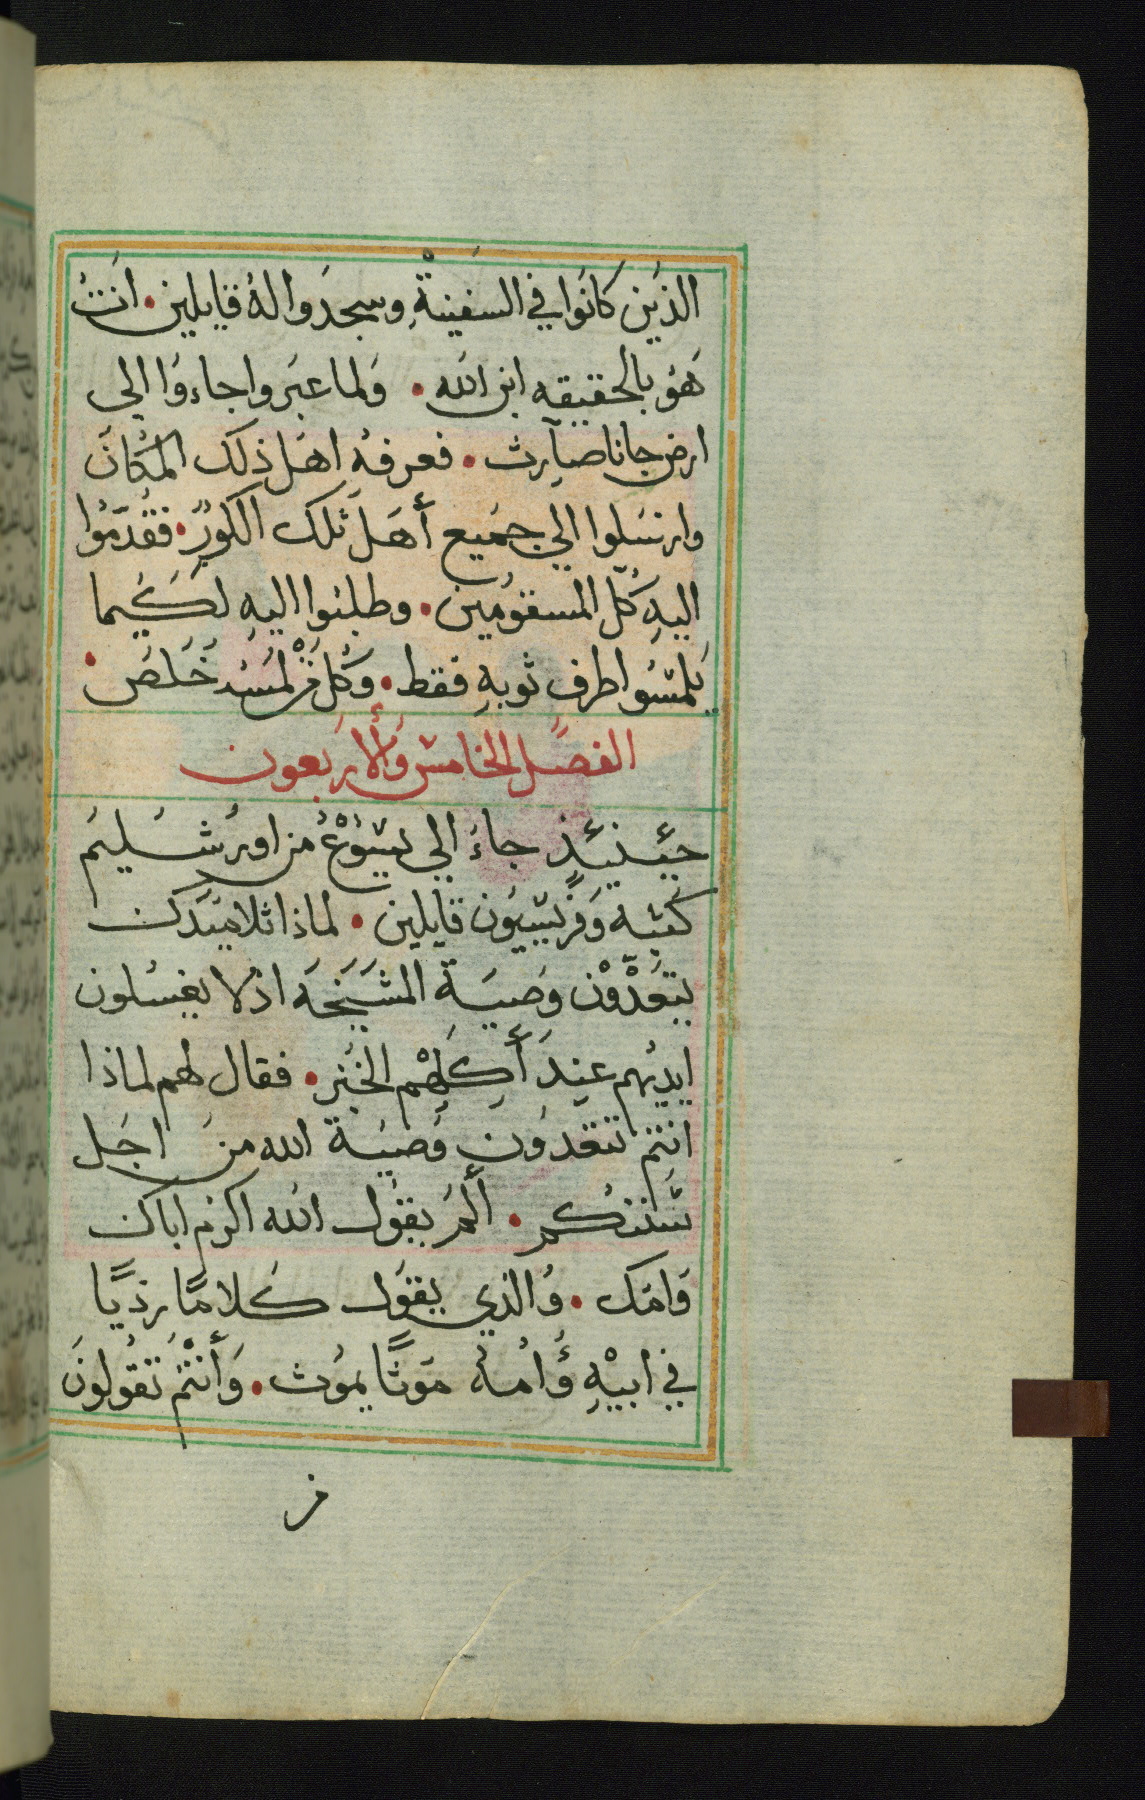 الذَين كانَوا في السَفينةْ وسجدَوا لهُ قايلين • انَتُ
هَوُ بالحقيقه ابن الله • وَلما عبَروا جاءوَا الي
ارض جاناصاَرت • فعرفهُ اهَل ذلك المكُانَ
وارسَلوا الي جمَيع أهَل تلك الكورُ • فقُدّمُوا
اليهِ كُل المسقومُين • وطلبوا اليهِ لكَيما
يَلمسُوا طرف ثوبهِ فقط • وَكُل مَنْ لمسَهُ خَلصَ •
الفصَل الخامس وَألارَبعون
حيَنئِذٍ جاءَ الي يسَوُعْ مُن اورُشَليمَ
كتبه وَفرّيسيوُن قايلين • لماذا تلاميَدك
يتعَدّوْن وَصيَة المشَيَخَه اذ لا يغسُلون
ايديُهم عندَ أكَلِهْم الخبُز • فقال لهم لماذا
انتمَ تتعَدوُن وَصيَة الله منَ اجَل
سَنتكُم • ألَمَ يقوُل الله اكرَم اباك
وَامَك • وُالذي يقوَل كَلامًا رَديًا
في ابيْهِ وُامُهُ مَوتًا يموُت • وَأنتْمُ تقُولونَ